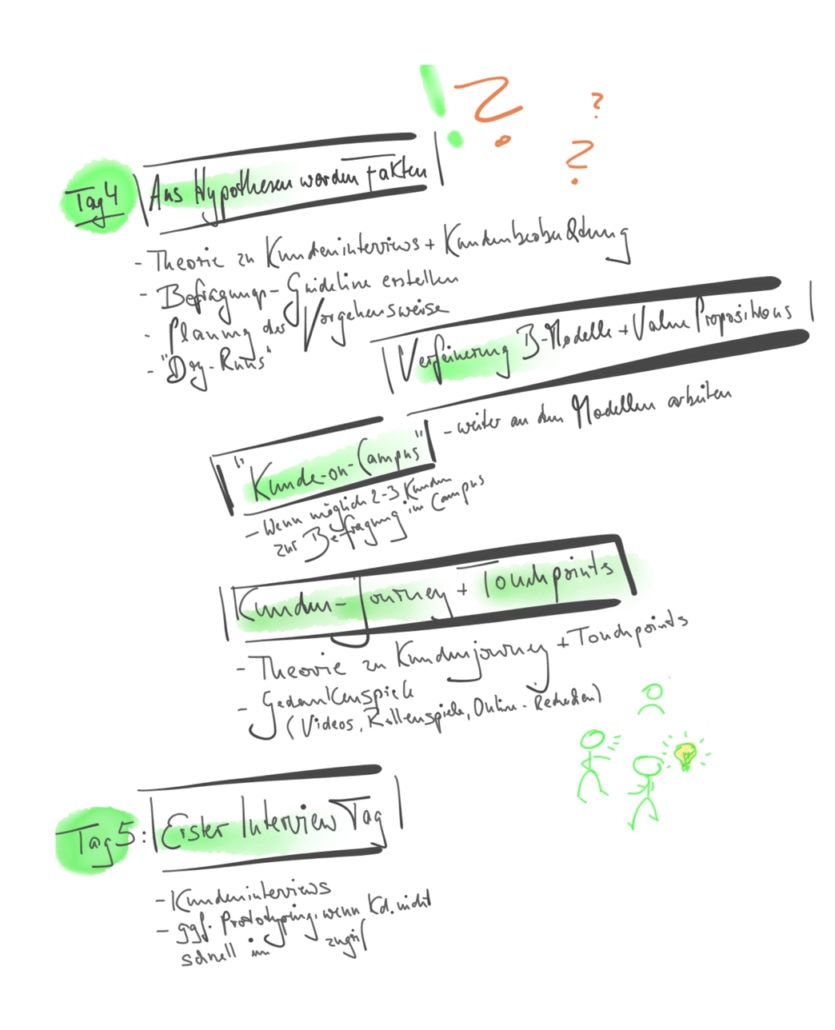 ! ? ?
?
Tag 4 Aus Hypothesen werden Fakten
- Theorie zu Kundeninterviews + Kundenbeobachtung
- Befragungs-Guideline erstellen
- Planung der Vorgehensweise
- "Dry-Runs"
Verfeinerung B-Modelle + Value Propositions
- weiter an den Modellen arbeiten
"Kunde-on-Campus"
- Wenn möglich 2-3 Kunden
zur Befragung im Campus
Kunden-Journey + Touchpoints
- Theorie zu Kundenjourney + Touchpoints
- Gedankenspiele
(Videos, Rollenspiele, Online-Recherchen)
Tag 5: Erster Interview Tag
- Kundeninterviews
- ggf. Prototyping, wenn Kd. nicht
schnell im